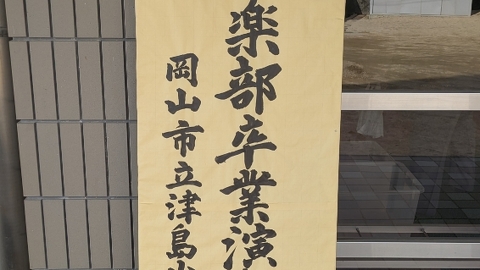 楽部卒業演
岡山市立津島小